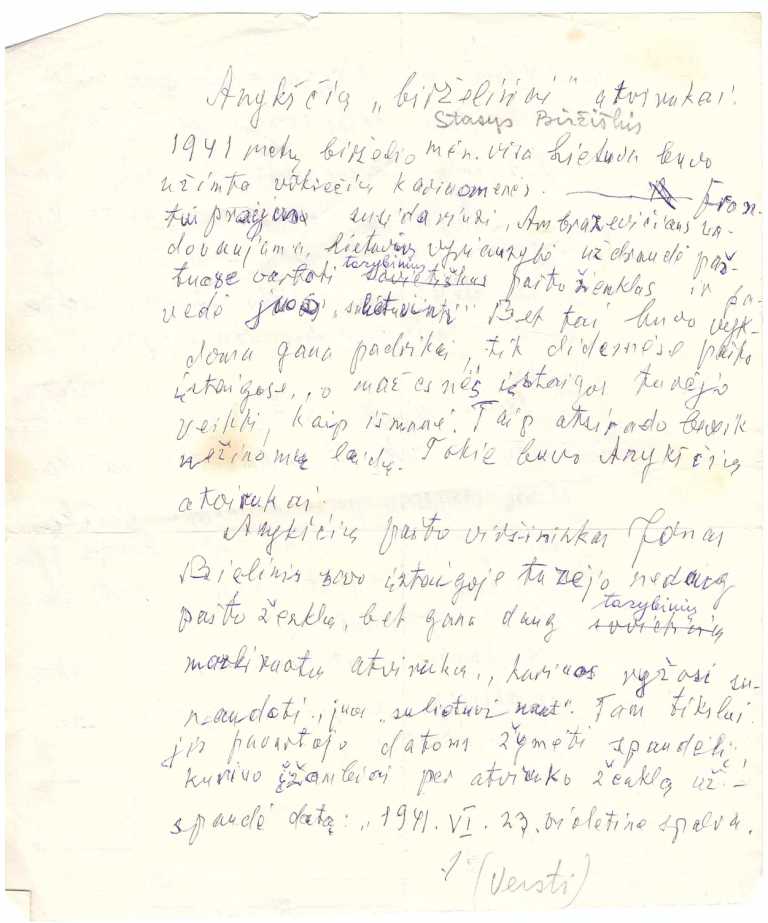 Anykščių „birželiniai" atvirukai.
Stasys Biržiškis
1941 metų birželio mėn. visa Lietuva buvo
užimta vokiečių kariuomenės. Fron-
tui praėjus susidariusi, Ambrazevičiaus va-
dovaujama, Lietuvių vyriausybė uždraudė paš-
tuose vartoti tarybinius pašto ženklus ir pa-
vedė juos „sulietuvinti" Bet tai buvo vyk-
doma gana padrikai, tik didesnėse pašto
įstaigose, o mažesnės įstaigos turėjo
veikti, kaip išmanė. Taip atsirado beveik
nežinomų laidų. Tokie buvo Anykščių
atvirukai.
Anykščių pašto viršininkas Jonas
Bielinis savo įstaigoje turėjo nedaug
pašto ženklų, bet gana daug tarybinių
markiruotų atvirukų, kuriuos ryžosi su-
naudoti, juos „sulietuvinus". Tam tikslui
jis pavartojo datoms žymėti spaudelį,
kuriuo įžambiai per atviruko ženklą už-
spaudė datą: „1941. VI. 23. violetine spalva.
(Versti)